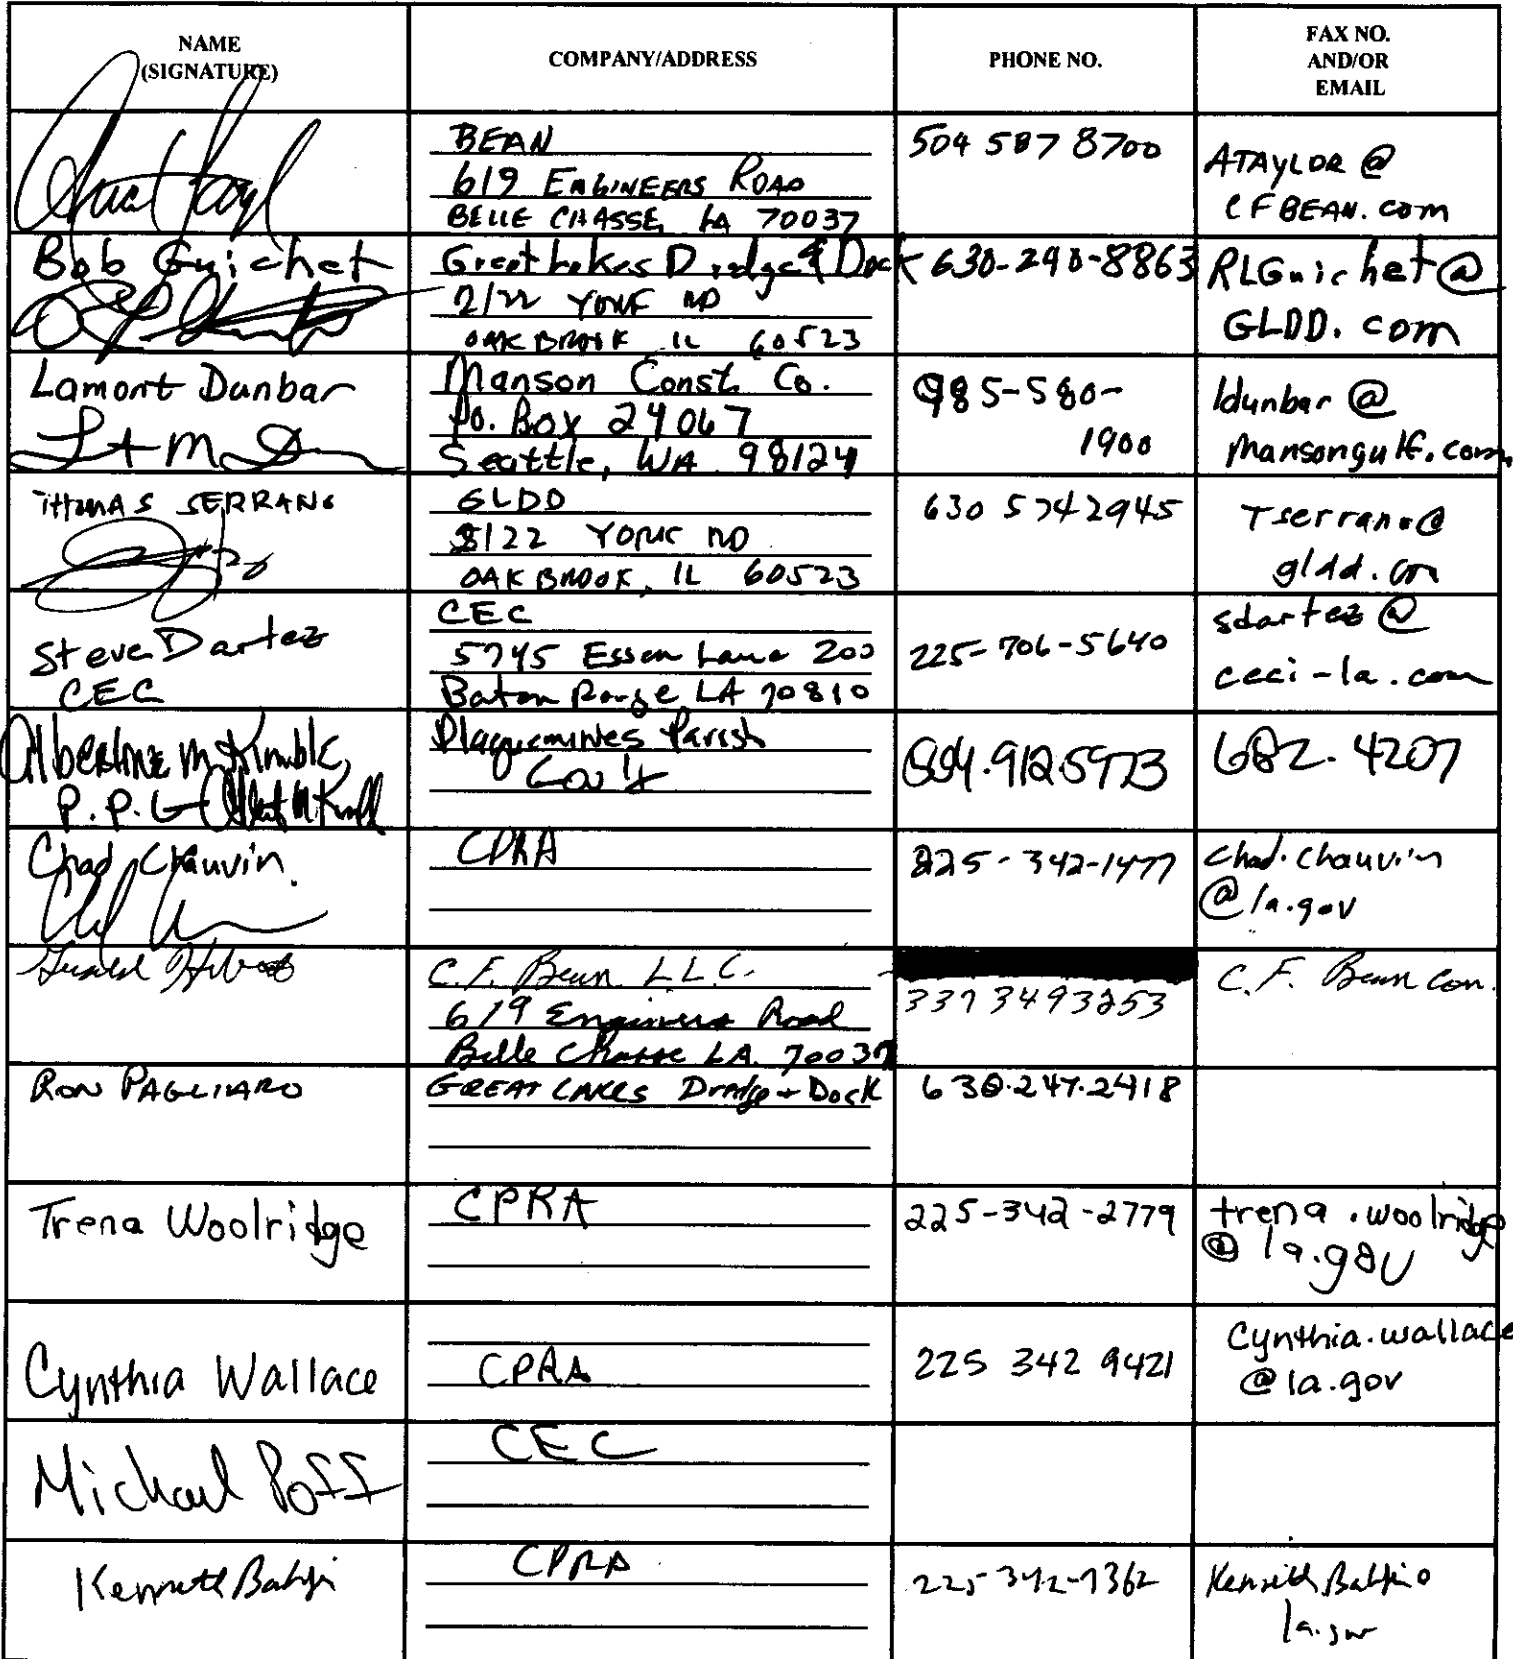 NAME
(SIGNATURE)
COMPANY/ADDRESS
PHONE NO.
FAX NO.
AND/OR
EMAIL
BEAN
619 ENGINEERS ROAD
BELLE CHASSE, LA 70037
504 587 8700
ATAYLOR @
CFBEAN.com
Bob Guichet
Great Lakes Dredge & Dock
2122 YORK RD
OAK BROOK IL 60523
630-290-8863
RLGuichet@
GLDD.com
Lamont Dunbar
Manson Const. Co.
P.O. Box 24067
Seattle, WA 98124
985-580-
1900
ldunbar @
mansongulf.com
THOMAS SERRANO
GLDD
2122 YORK RD
OAK BROOK, IL 60523
630 574 2945
Tserrano@
gldd.com
Steve Dartez
CEC
CEC
5745 Essen Lane 200
Baton Rouge, LA 70810
225-706-5640
sdartez @
ceci-la.com
Albertine M. Kimble,
P.P.G
Plaquemines Parish
Gov't
504.912.5973
682.4207
Chad Chauvin
CPRA
225-342-1477
chad.chauvin
@la.gov
C.F. Bean L.L.C.
619 Engineers Road
Belle Chasse LA. 70037
337 349 3253
C.F. Bean Com.
RON PAGLIARO
GREAT LAKES Dredge + Dock
630.247.2418
Trena Woolridge
CPRA
225-342-2779
trena.woolridge
@la.gov
Cynthia Wallace
CPRA
225 342 9421
Cynthia.wallace
@la.gov
Michael Poff
CEC
Kenneth
CPRA
225-342-7362